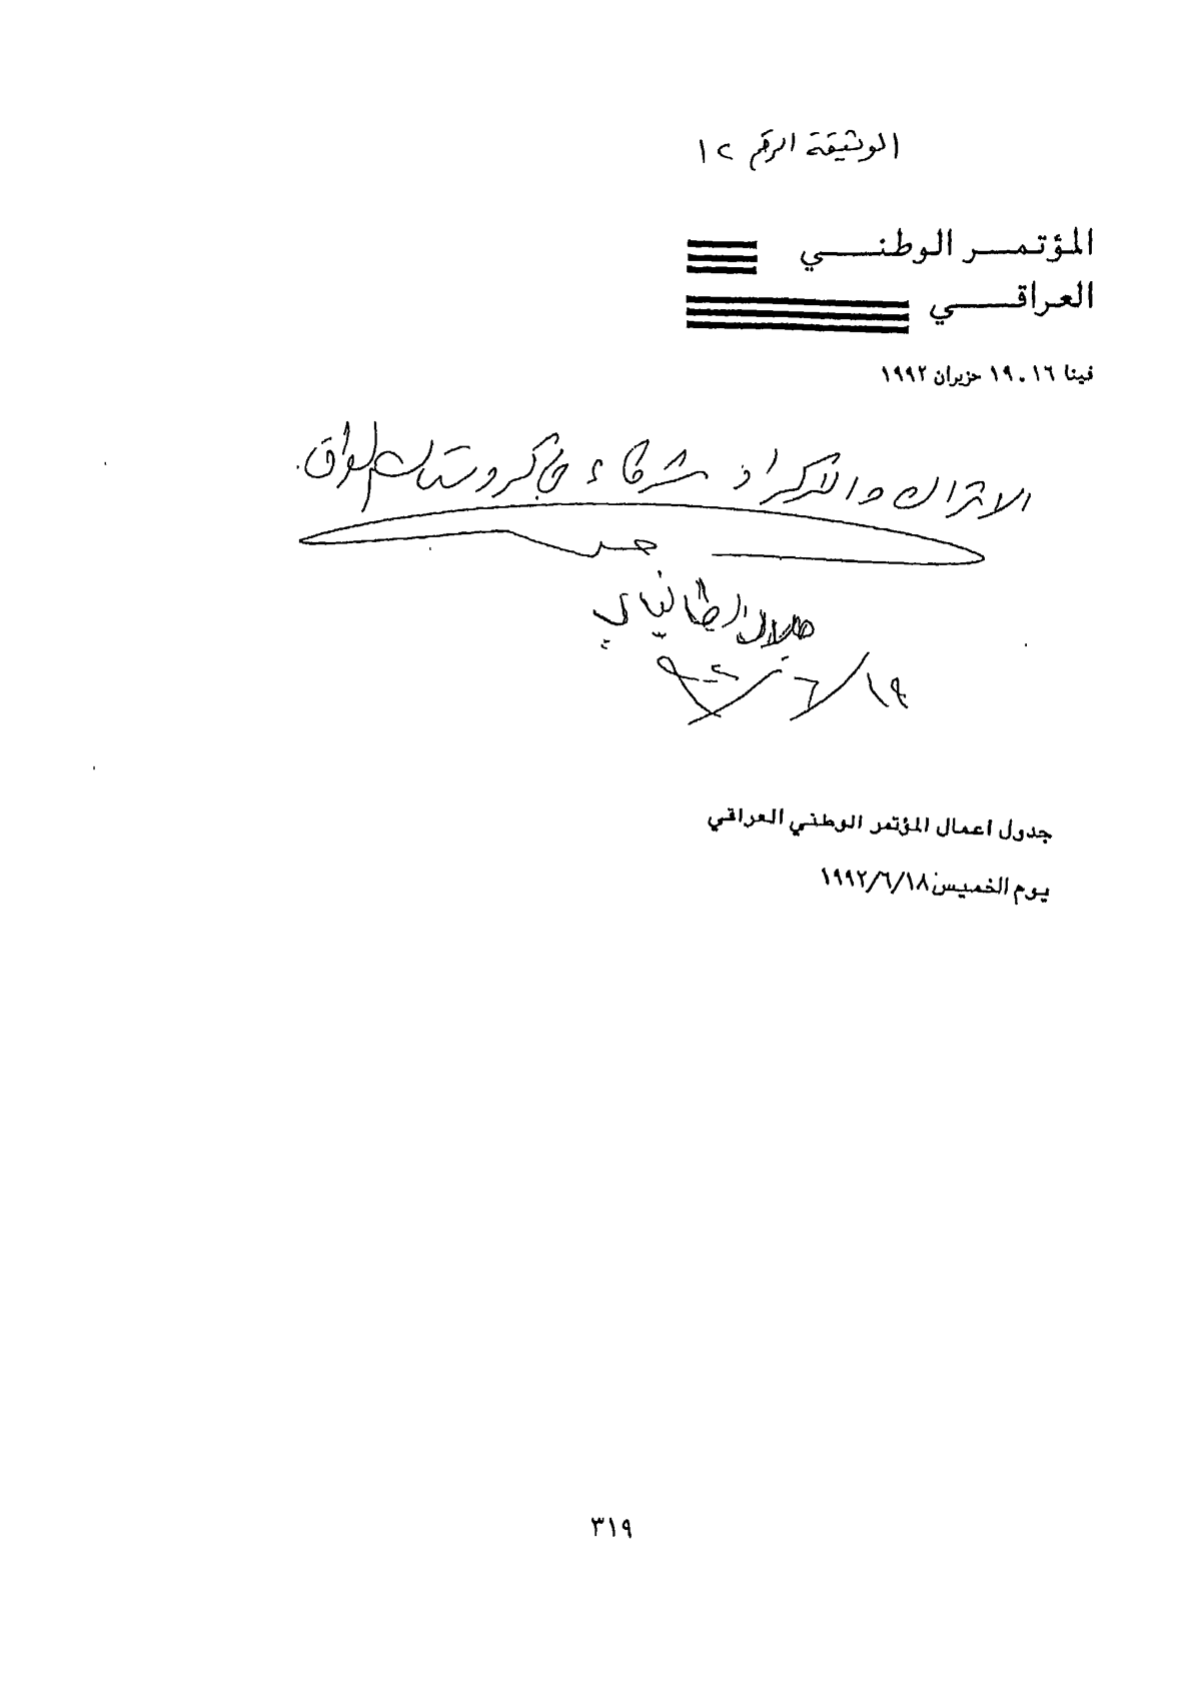 الوثيقة الرقم ١٢
المؤتمر الوطني
العراقي
فينا ١٦ . ١٩ حزيران ١٩٩٢
الاتراك والاكراد شركاء في كردستان العراق
جلال الطالباني
١٩/٦/٩٢
جدول اعمال المؤتمر الوطني العراقي
يوم الخميس ١٩٩٢/٦/١٨
٣١٩